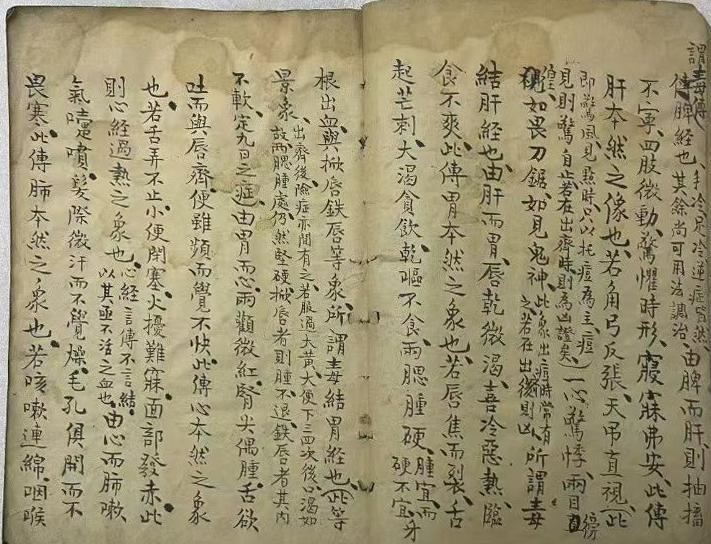 謂毒傳
傳脾經也手冷足冷逆症皆然其餘尚可用法調治由脾而肝則抽搐
不寕四肢微動驚懼時形寢寐弗安此傳
肝本然之像也若角弓反張天吊直視此
即驚風見點時只以托痘為主痘
見則驚自止若在出齊時則為凶證矣一心驚悸兩目直
惶如畏刀鋸如見鬼神此象出痘時常有之若在出後則凶所謂毒
結肝經也由肝而胃唇乾微渴喜冷惡熱臨
食不爽此傳胃本然之象也若唇焦而裂舌
起芒刺大渴貪飲乾嘔不食兩腮腫硬腫宜而硬不宜牙
根出血與掀唇鉄唇等象所謂毒結胃經也此等
景象出齊後險症亦間有之若服過大黃大便下三四次後心渴如故兩腮腫處仍然堅硬掀唇者則腫不退鉄唇者其內
不軟定九日之症由胃而心兩顴微紅腎尖偶腫舌欲
吐而與唇齊便雖頻而覺不快此傳心本然之象
也若舌弄不止小便閉塞火擾難寐面部發赤此
則心經過熱之象也心經言傳不言結以其亟不活之血也由心而肺嗽
氣嚏噴髮際微汗而不覺燥毛孔俱開而不
畏塞此傳肺本然之象也若咳嗽連綿咽喉